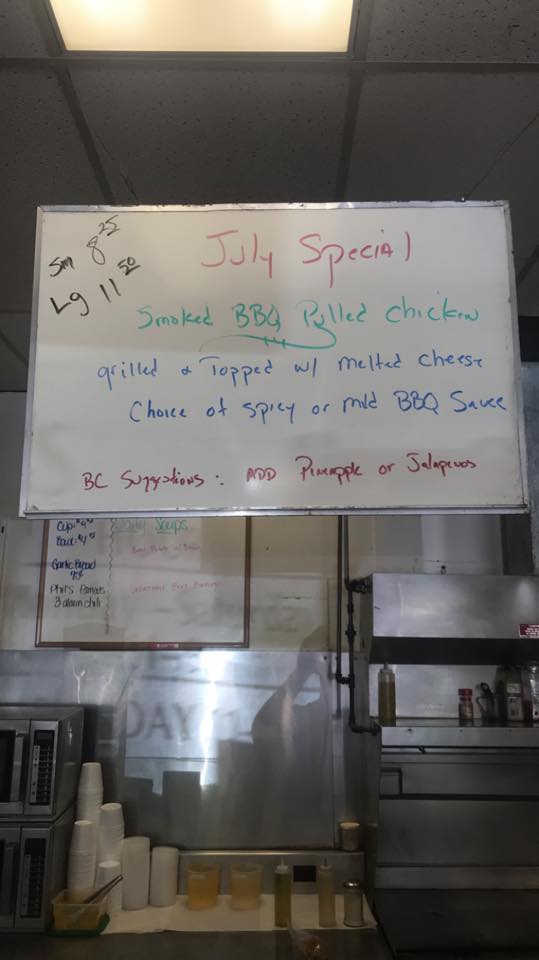 Sm 8 25
Lg 11 50
July Special
Smoked BBQ Pulled chicken
grilled & Topped w/ melted cheese
Choice of spicy or mild BBQ Sauce
BC Suggestions: ADD Pineapple or Jalapenos
Daily Soups
Cup
Bowl
Garlic Bread
Phil's famous
3 alarm chili